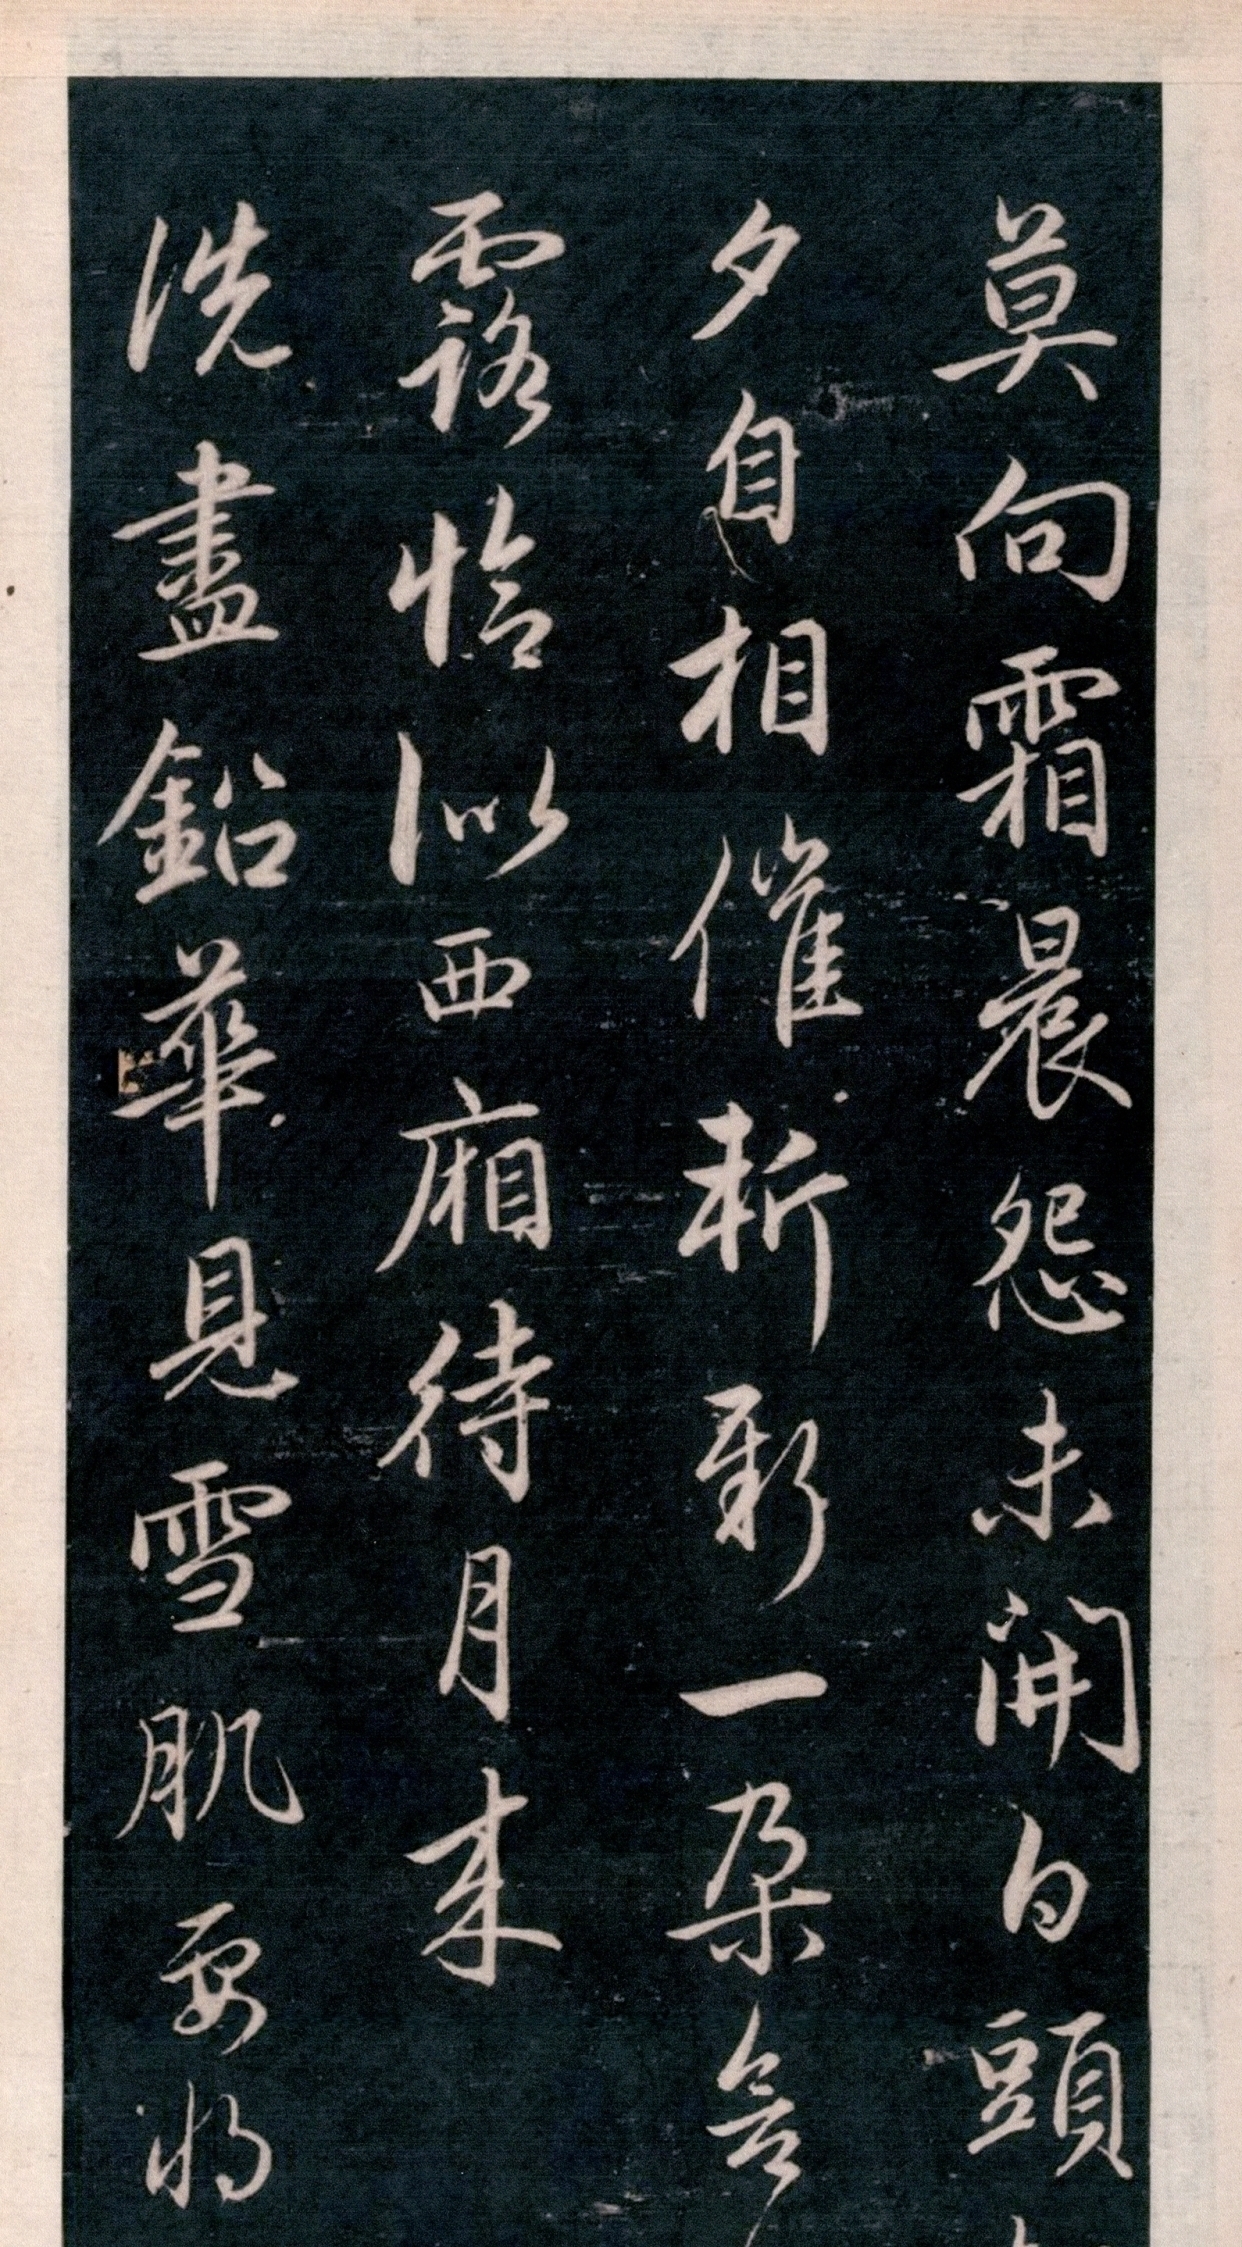 莫向霜晨怨未開白頭
夕自相催斬新一朵含
露恰似西廂待月来
洗盡鉛華見雪肌要將